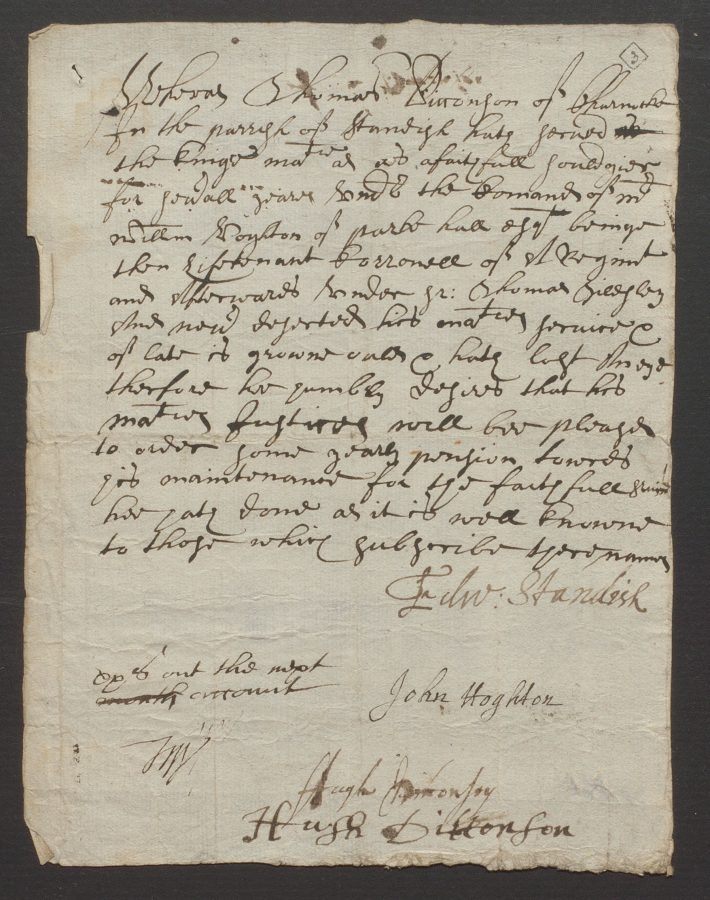 3
Wheras Thomas Dicconson of Charnocke
In the parrish of Standish hath served
the kinge matie as a faithfull souldgier
for sevrall yeares Undr the Komand of mr
Willm Hoghton of parke hall Esqr beinge
then Liftenant Korronell of A Regimt
and Afterwards Under Sr: Thomas Tildesley
And nevr deserted his maties service &
of late is growne ould & hath lost An eye
therfore hee humbly desires that his
maties Justices will bee pleased
to order some yearly pension towrds
his maintenance for the faithfull service
hee hath done as it is well knowne
to those which subscribe there names
Edw: Standish
out the next
month account
John Hoghton
Hugh
Hugh Dicconson